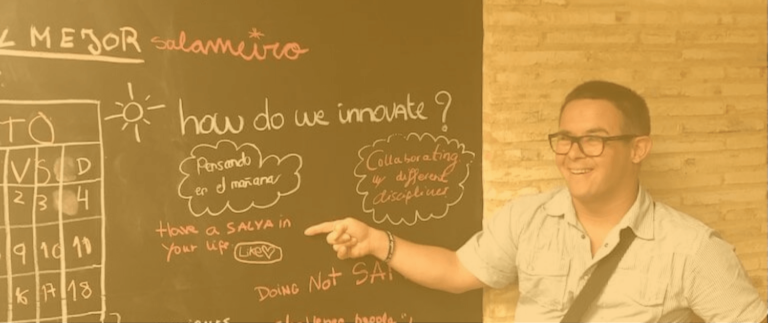 L MEJOR salameiro
how do we innovate?
TO
V S D
2 3 4
9 10 11
16 17 18
Pensando
en el mañana
Collaborating
different
disciplines
Have a SALVA in
your life LIKE♡
DOING NOT SA
people",